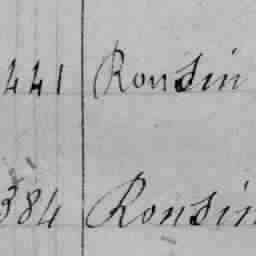 441 Ronsin
384 Ronsin